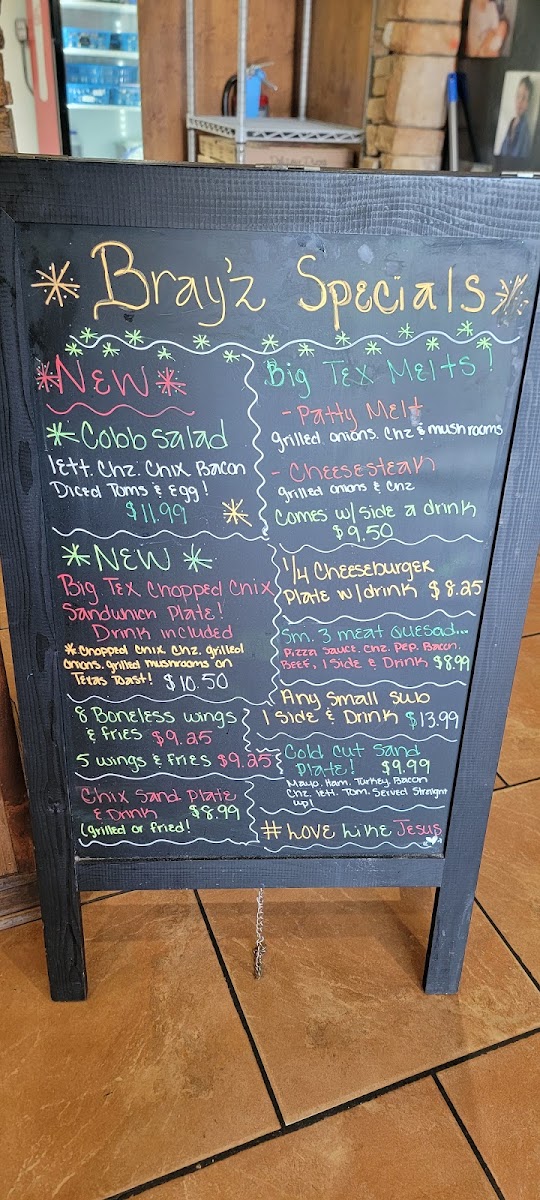 * Bray'z Specials *
*NEW*
*Cobb Salad
lett. Chz. Chix Bacon
Diced Toms & Egg!
$11.99
*NEW*
Big Tex Chopped Chix
Sandwich Plate!
Drink included
*Chopped Chix Chz. grilled
Onions. grilled mushrooms on
Texas Toast! $10.50
8 Boneless wings
& fries $9.25
5 wings & fries $9.25
Chix Sand Plate
& Drink $8.99
(grilled or fried!
Big Tex Melts!
- Patty Melt
grilled onions. Chz & mushrooms
- Cheesesteak
grilled onions & Chz
Comes w/ side a drink
$9.50
1/4 Cheeseburger
Plate w/drink $8.25
Sm. 3 meat Quesad...
Pizza sauce. Chz. Pep. Bacon.
Beef, 1 Side & Drink $8.99
Any Small Sub
1 Side & Drink $13.99
Cold Cut Sand
Plate! $9.99
Mayo. Ham. Turkey. Bacon
Chz. lett. Tom. Served Straight
up!
# Love Like Jesus